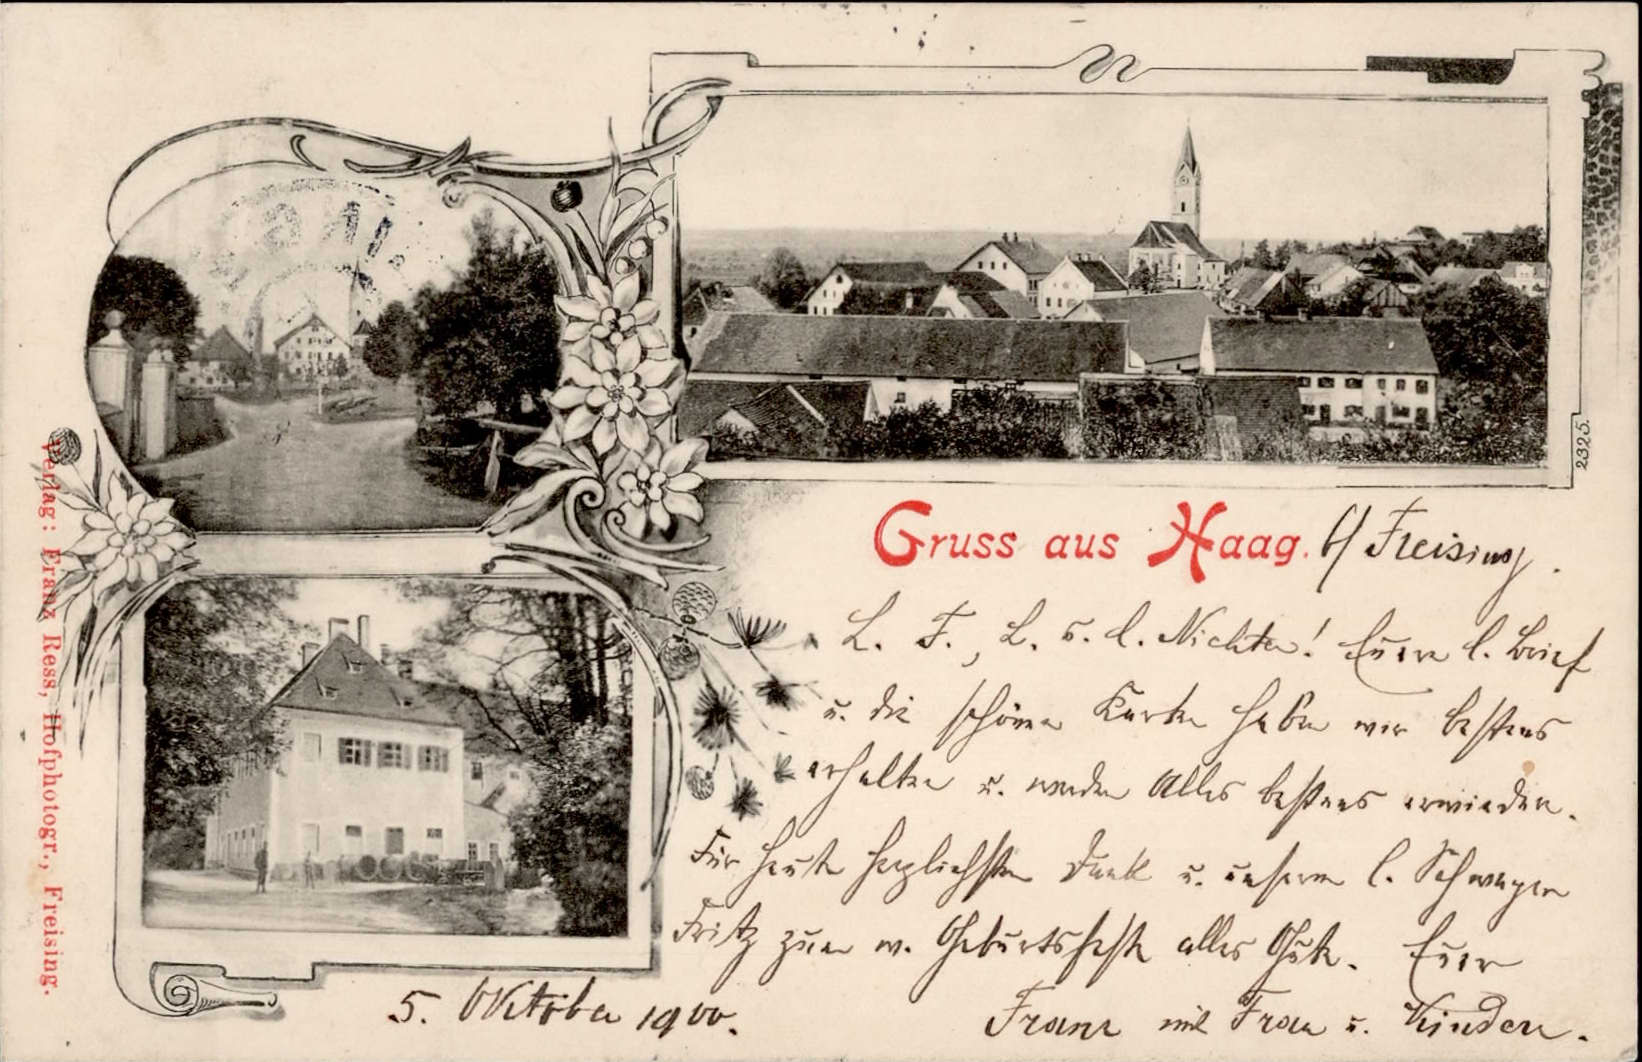 Gruss aus Haag. b/ Freising.
L. F., L. u. l. Nichten! Euern l. Brief
u. die schönen Karten haben wir bestens
erhalten u. werden Alles bestens erwiedern.
Für heute herzlichsten Dank u. unserm l. Schwager
Fritz zum w. Geburtsfeste alles Gute. Euer
Franz mit Frau u. Kindern.
5. Oktober 1900.
Verlag: Franz Ress, Hofphotogr., Freising.
2325.